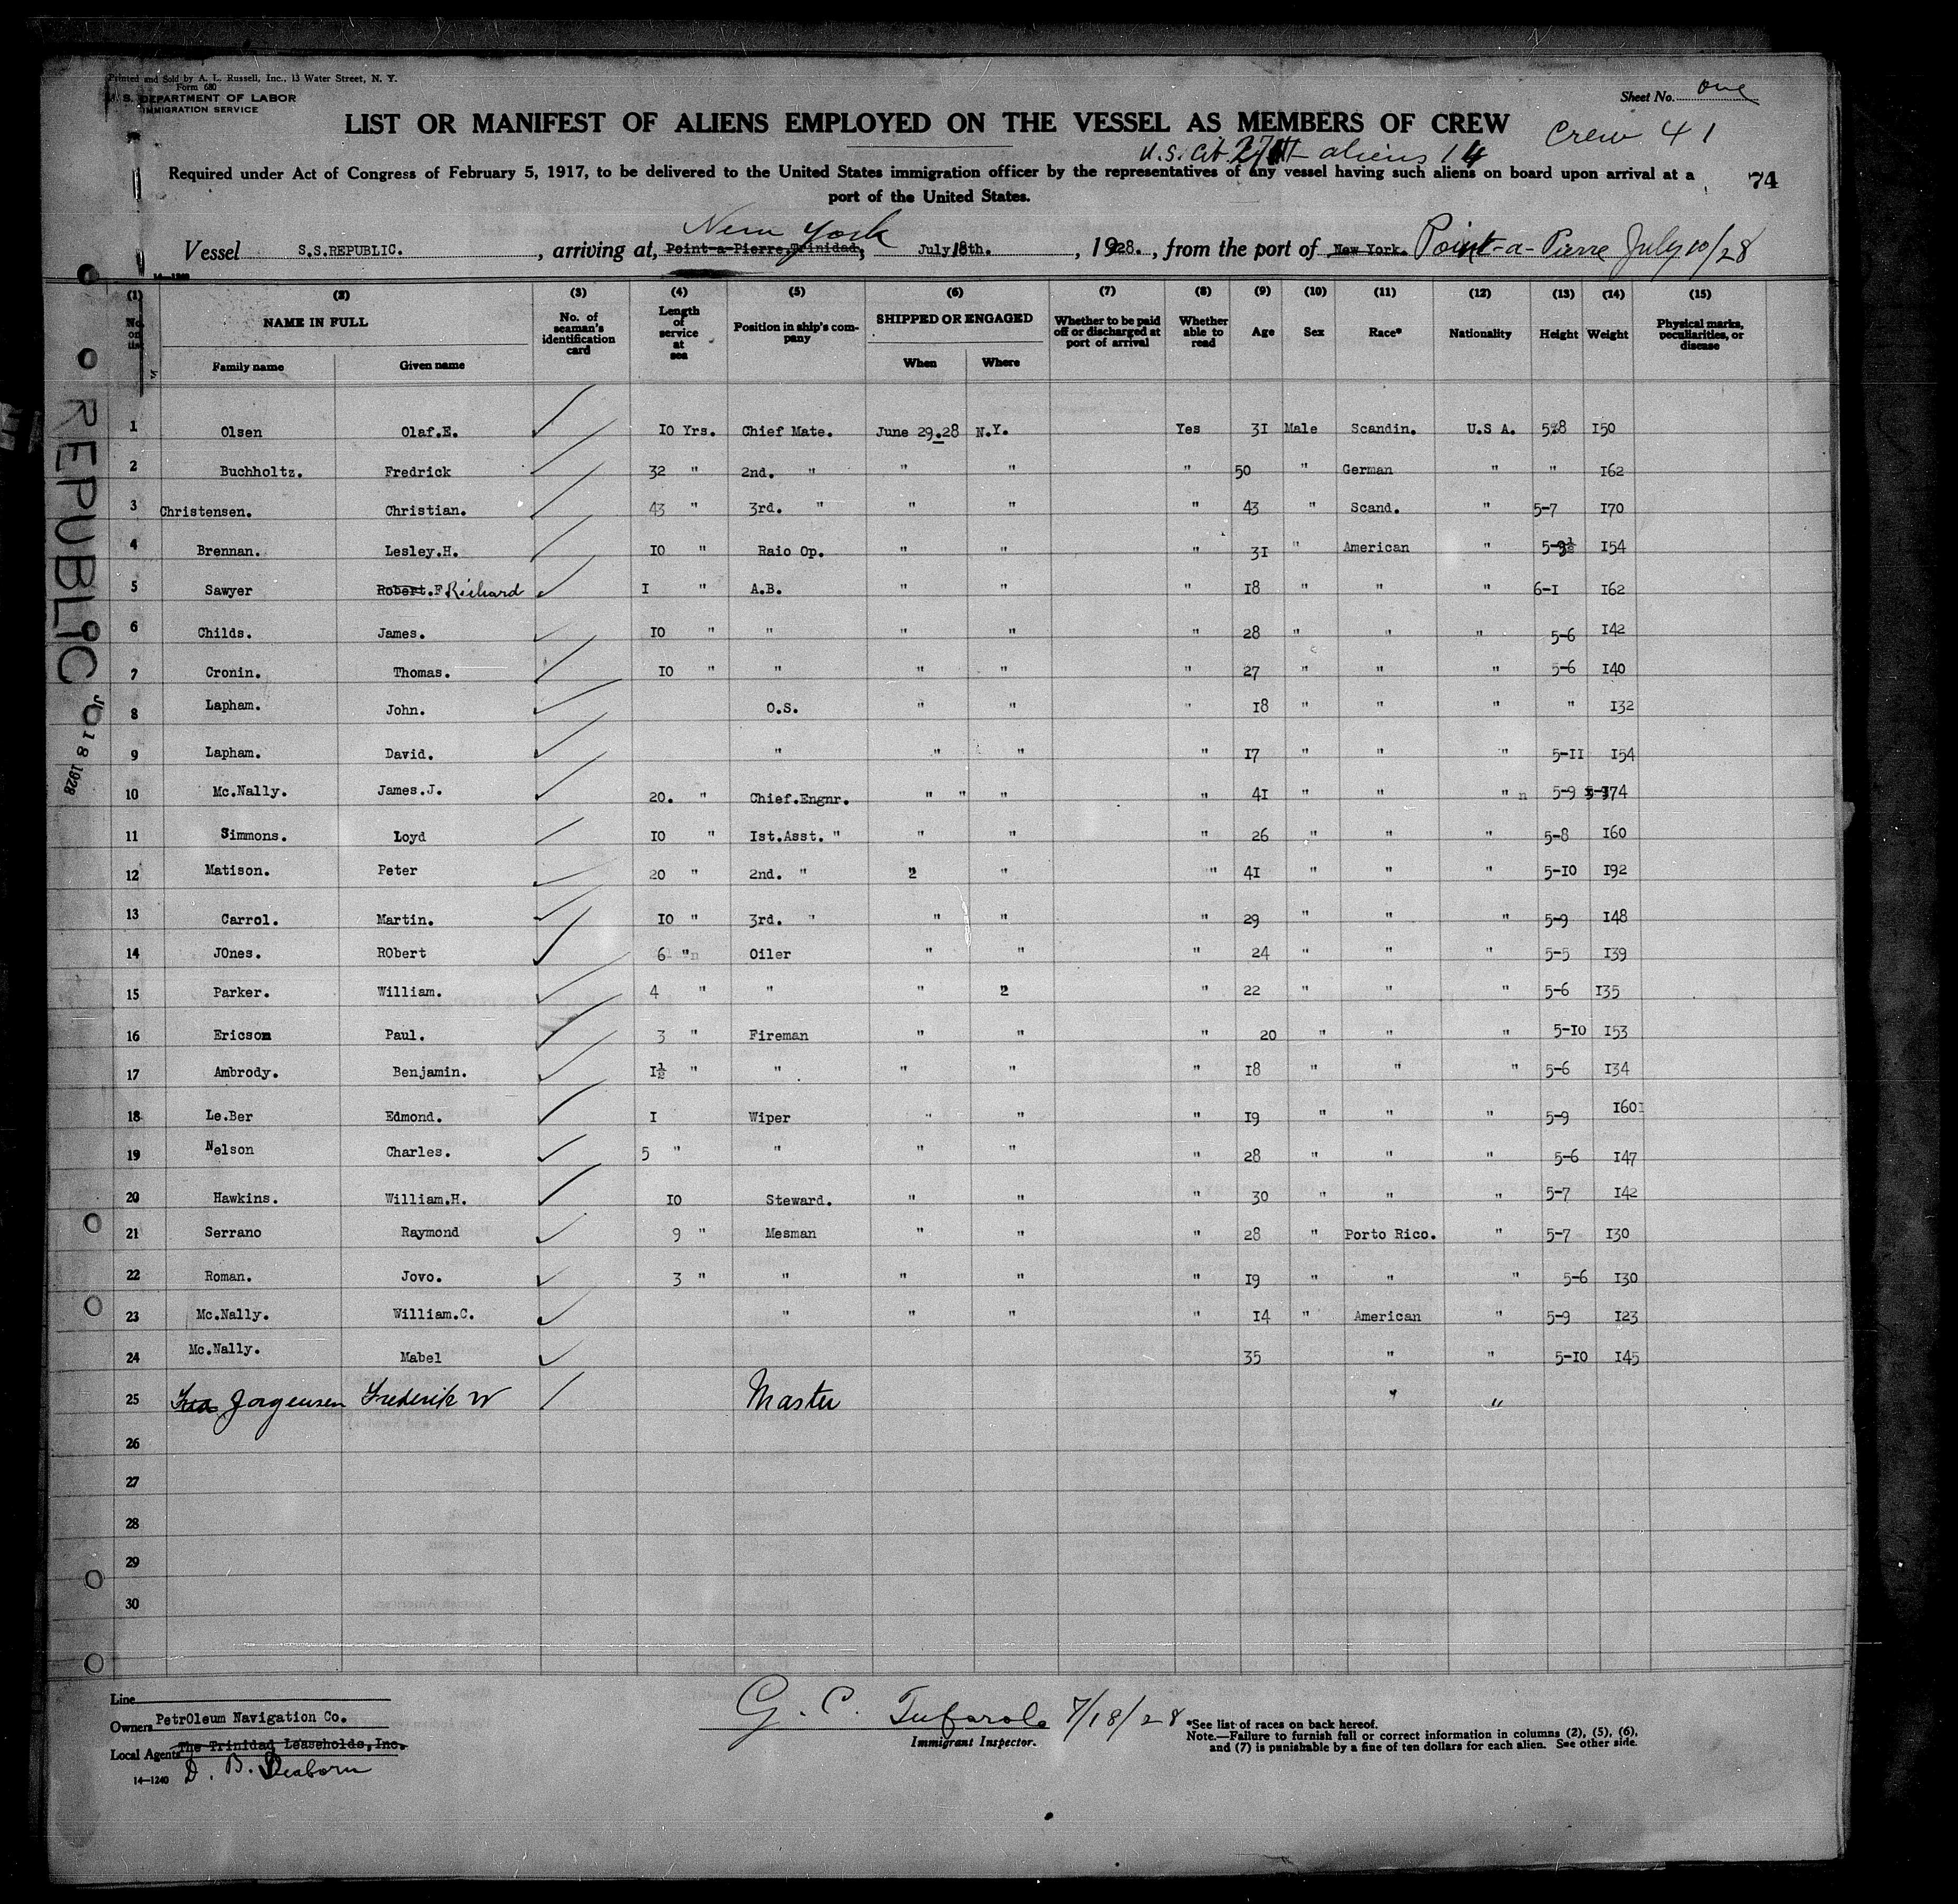 Printed and Sold by A. L. Russell, Inc., 13 Water Street, N. Y.
Form 680
U. S. DEPARTMENT OF LABOR
IMMIGRATION SERVICE
Sheet No. one
LIST OR MANIFEST OF ALIENS EMPLOYED ON THE VESSEL AS MEMBERS OF CREW
Crew 41
U.S. Cit. 27 aliens 14
Required under Act of Congress of February 5, 1917, to be delivered to the United States immigration officer by the representatives of any vessel having such aliens on board upon arrival at a
port of the United States.
74
New York
Vessel S.S.REPUBLIC. , arriving at, Point-a-Pierre,Trinidad, July 18th. , 1928. , from the port of New York. Point-a-Pierre July 10/28
14-1240
(1) (2) (3) (4) (5) (6) (7) (8) (9) (10) (11) (12) (13) (14) (15)
No. on list NAME IN FULL Family name Given name No. of seaman's identification card Length of service at sea Position in ship's company SHIPPED OR ENGAGED When Where Whether to be paid off or discharged at port of arrival Whether able to read Age Sex Race* Nationality Height Weight Physical marks, peculiarities, or disease
1 Olsen Olaf.E. 10 Yrs. Chief Mate. June 29.28 N.Y. Yes 31 Male Scandin. U.S A. 5-8 150
2 Buchholtz. Fredrick 32 " 2nd. " " " " 50 " German " " 162
3 Christensen. Christian. 43 " 3rd. " " " " 43 " Scand. " 5-7 170
4 Brennan. Lesley.H. 10 " Raio Op. " " " 31 " American " 5-9½ 154
5 Sawyer Robert.F Richard 1 " A.B. " " " 18 " " " 6-1 162
6 Childs. James. 10 " " " " " 28 " " " 5-6 142
7 Cronin. Thomas. 10 " " " " " 27 " " " 5-6 140
8 Lapham. John. O.S. " " " 18 " " " " 132
9 Lapham. David. " " " " 17 " " " 5-11 154
10 Mc.Nally. James.J. 20. " Chief.Engnr. " " " " 41 " " " n 5-9 174
11 Simmons. Loyd 10 " 1st.Asst. " " " " 26 " " " 5-8 160
12 Matison. Peter 20 " 2nd. " 2 " " 41 " " " 5-10 192
13 Carrol. Martin. 10 " 3rd. " " " " 29 " " " 5-9 148
14 JOnes. RObert 6 " n Oiler " " " 24 " " " 5-5 139
15 Parker. William. 4 " " " 2 " 22 " " " 5-6 135
16 Ericson Paul. 3 " Fireman " " " 20 " " " 5-10 153
17 Ambrody. Benjamin. 1½ " " " " " 18 " " " 5-6 134
18 Le.Ber Edmond. 1 Wiper " " " 19 " " " 5-9 160
19 Nelson Charles. 5 " " " " " 28 " " " 5-6 147
20 Hawkins. William.H. 10 Steward. " " " 30 " " " 5-7 142
21 Serrano Raymond 9 " Mesman " " " 28 " Porto Rico. " 5-7 130
22 Roman. Jovo. 3 " " " " " 19 " " " 5-6 130
23 Mc.Nally. William.C. " " " " 14 " American " 5-9 123
24 Mc.Nally. Mabel 35 " " 5-10 145
25 Fred Jorgensen Frederik W Master " "
26
27
28
29
30
REPUBLIC
18 1928
Line
Owners PetrOleum Navigation Co.
Local Agents The Trinidad Leaseholds,Inc.
D. B. Deaborn
14-1240
G. C. Tufarolo 7/18/28
Immigrant Inspector.
*See list of races on back hereof.
Note.—Failure to furnish full or correct information in columns (2), (5), (6),
and (7) is punishable by a fine of ten dollars for each alien. See other side.